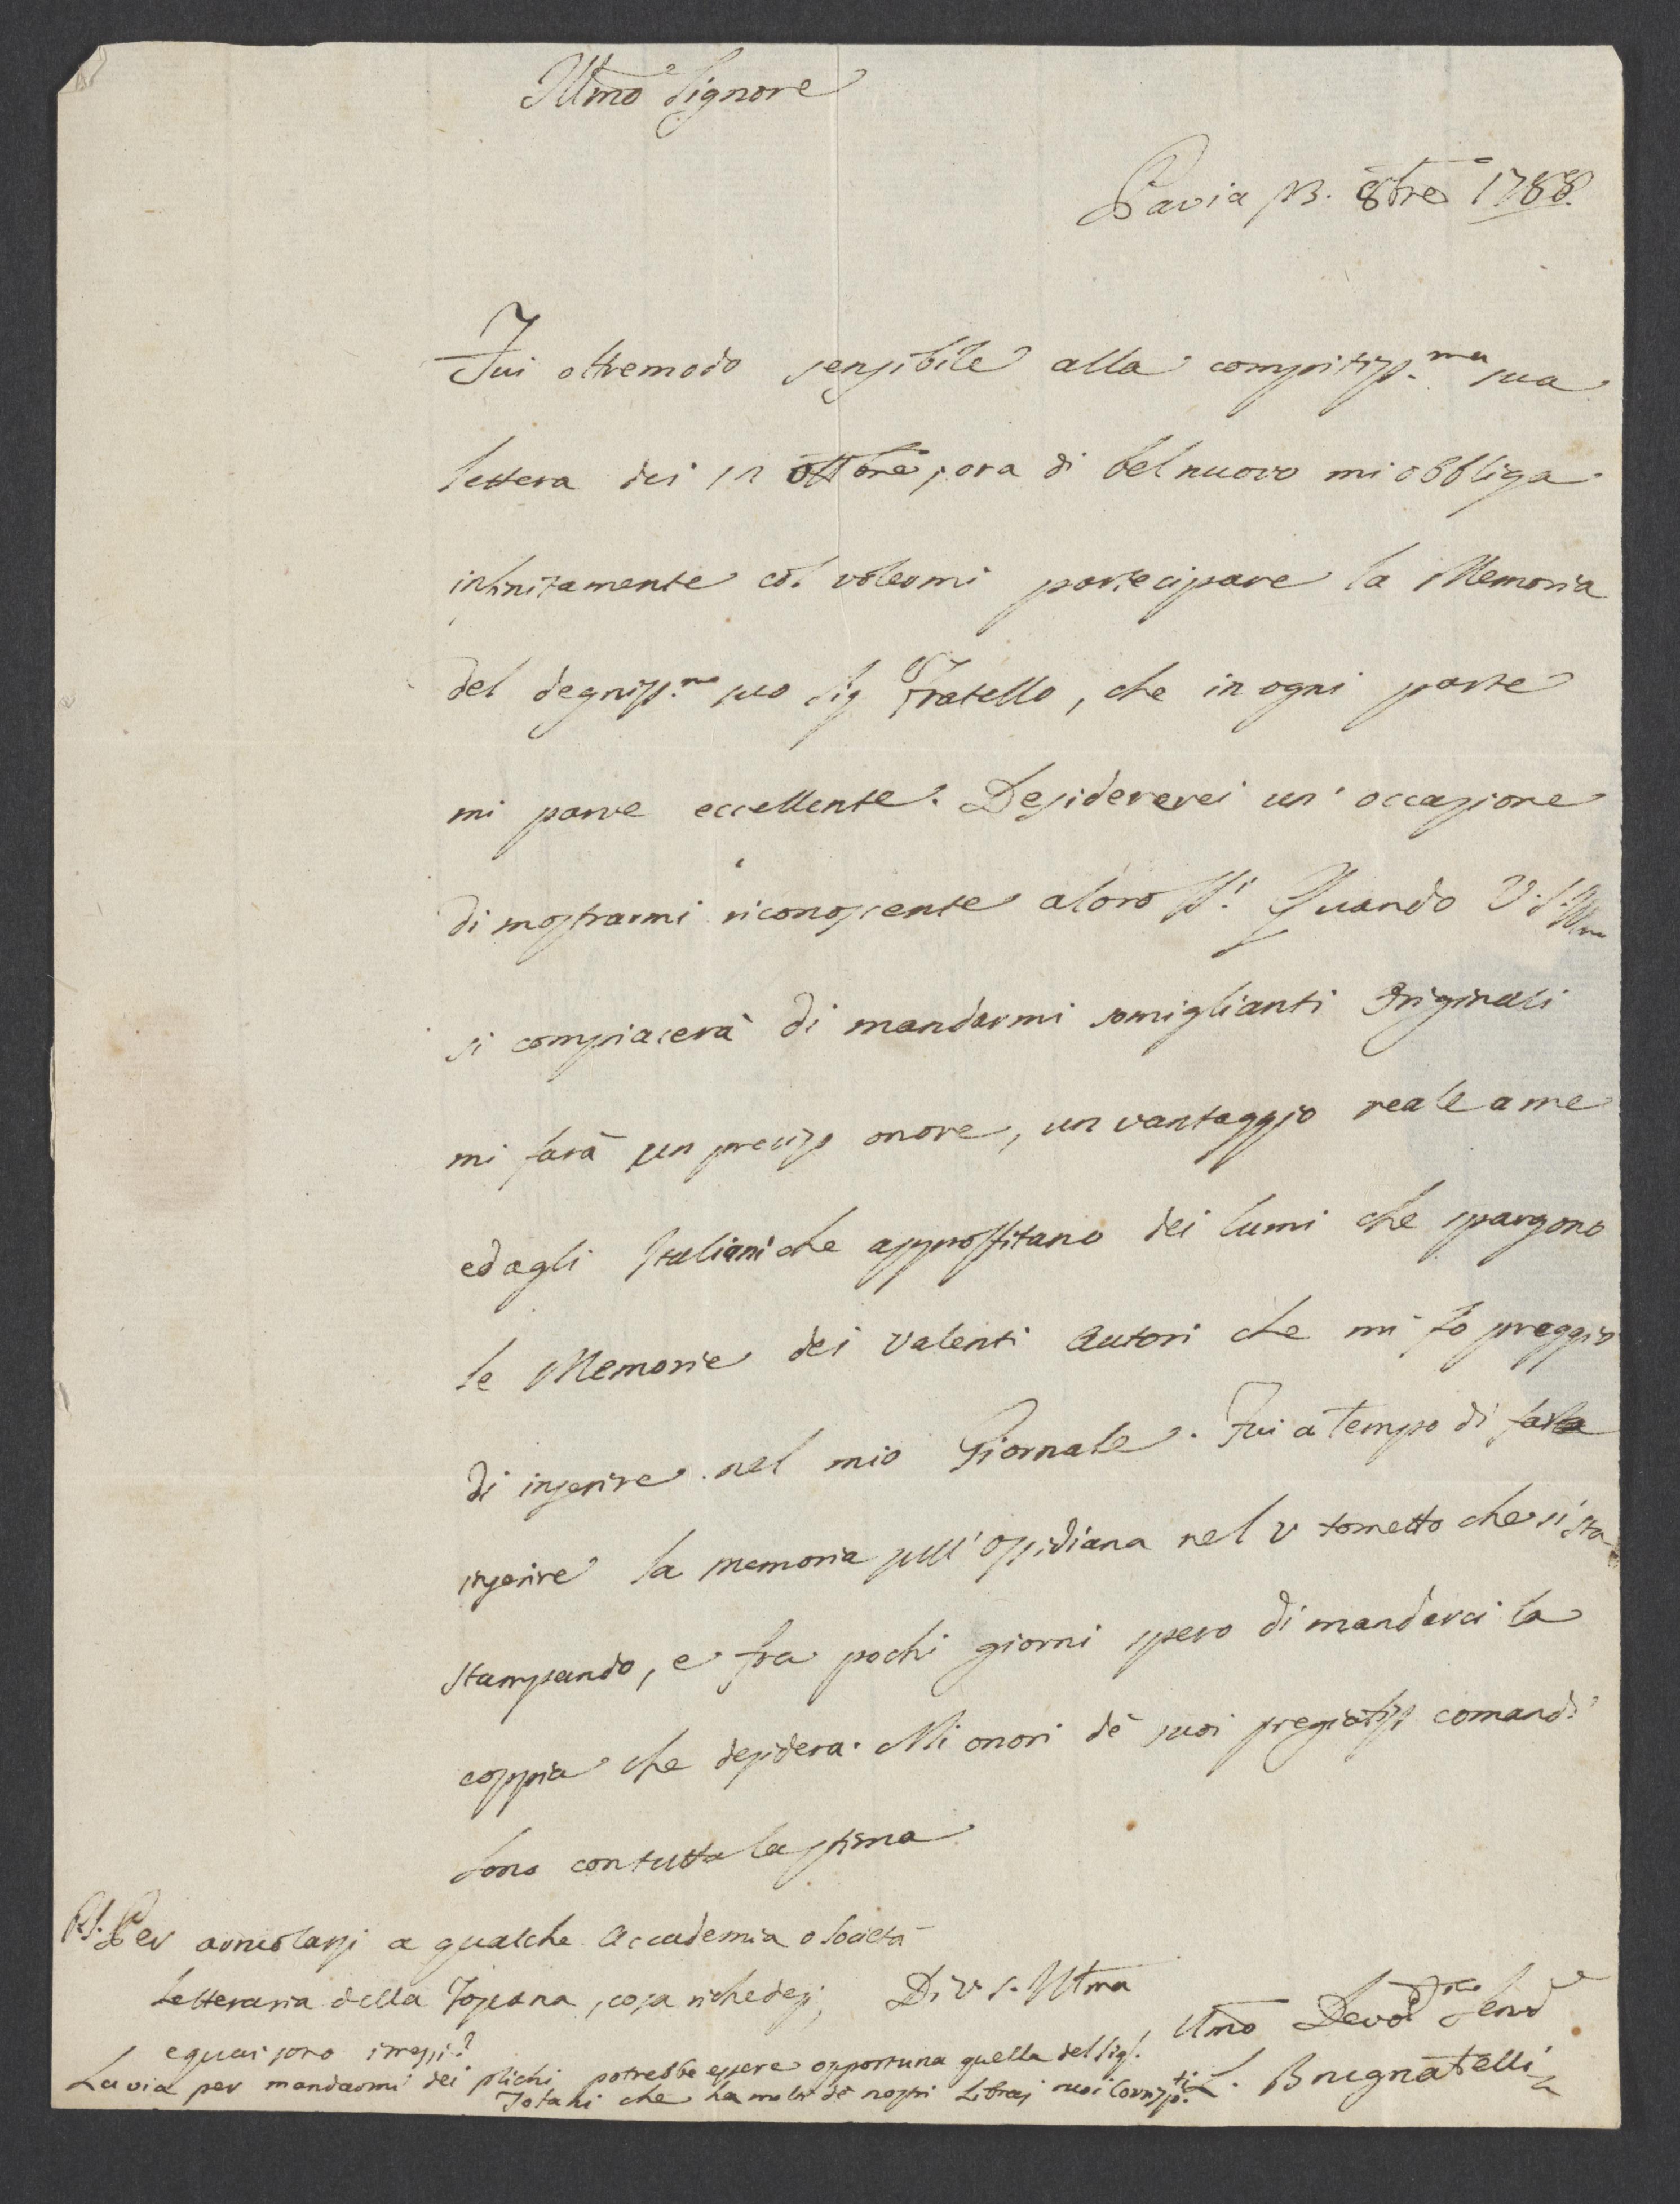 Illmo Signore
Pavia 13. 8bre 1788.
Fui oltremodo sensibile alla compitiss.ma sua
lettera dei 12 ottbre, ora di bel nuovo mi obbliga
infinitamente col volermi partecipare la Memoria
del degniss.mo suo Sig Fratello, che in ogni parte
mi parve eccellente. Desidererei un' occasione
di mostrarmi riconoscente a loro SS.i Quando V.S.Illma
si compiacerà di mandarmi somiglianti Originali
mi farà un preciso onore, un vantaggio reale a me
ed agli Italiani che approffitano dei lumi che spargono
le Memorie dei valenti Autori che mi fo preggio
di inserire nel mio Giornale. Fui a tempo di
inserire la memoria sull' Ossidiana nel V tometto che si sta
stampando, e fra pochi giorni spero di mandarci la
coppia che desidera. Mi onori de suoi pregiatiss comandi
Sono con tutta la stima
P.S. Per arruolarsi a qualche Accademia o Società
Letteraria della Toscana, cosa richedesi,
e quai sono i mezzi?
Di V. S. Illma
Umo Devo Serv
L. Brugnatelli
La via per mandarmi dei plichi potrebbe essere opportuna quella del Sig.
che ha molti de nostri Libraj suoi Corrisp.ti